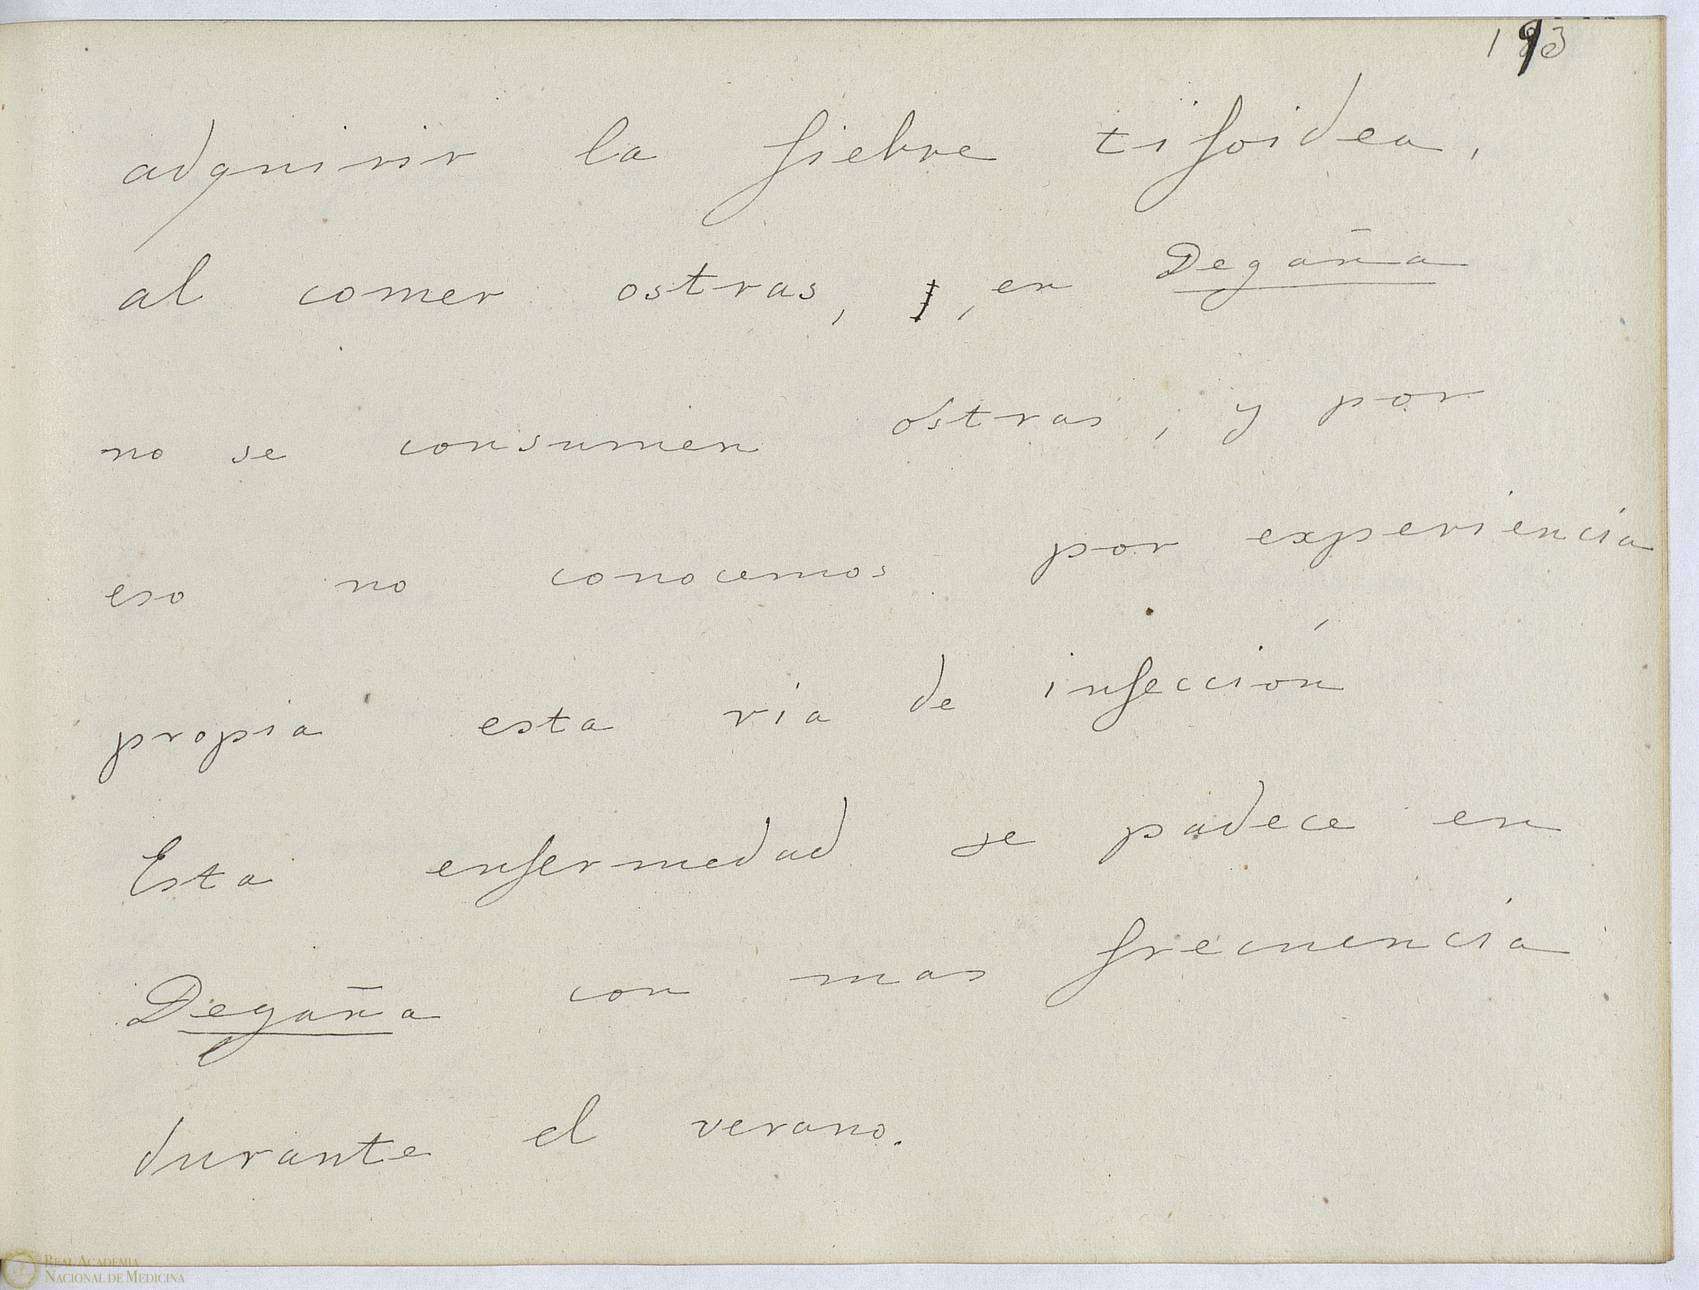 193
adquirir la fiebre tifoidea,
al comer ostras, , en Degaña
no se consumen ostras, y por
eso no conocemos por experiencia
propia esta via de infección
Esta enfermedad se padece en
Degaña con mas frecuencia
durante el verano.
REAL ACADEMIA
NACIONAL DE MEDICINA